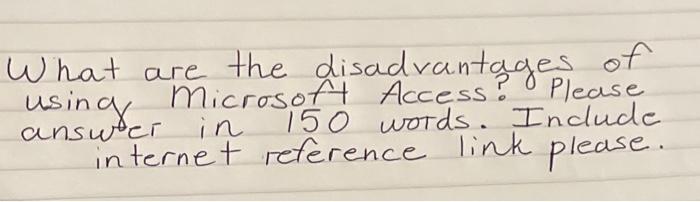 What are the disadvantages of
using Microsoft Access? Please
answer in 150 words. Include
internet reference link please.